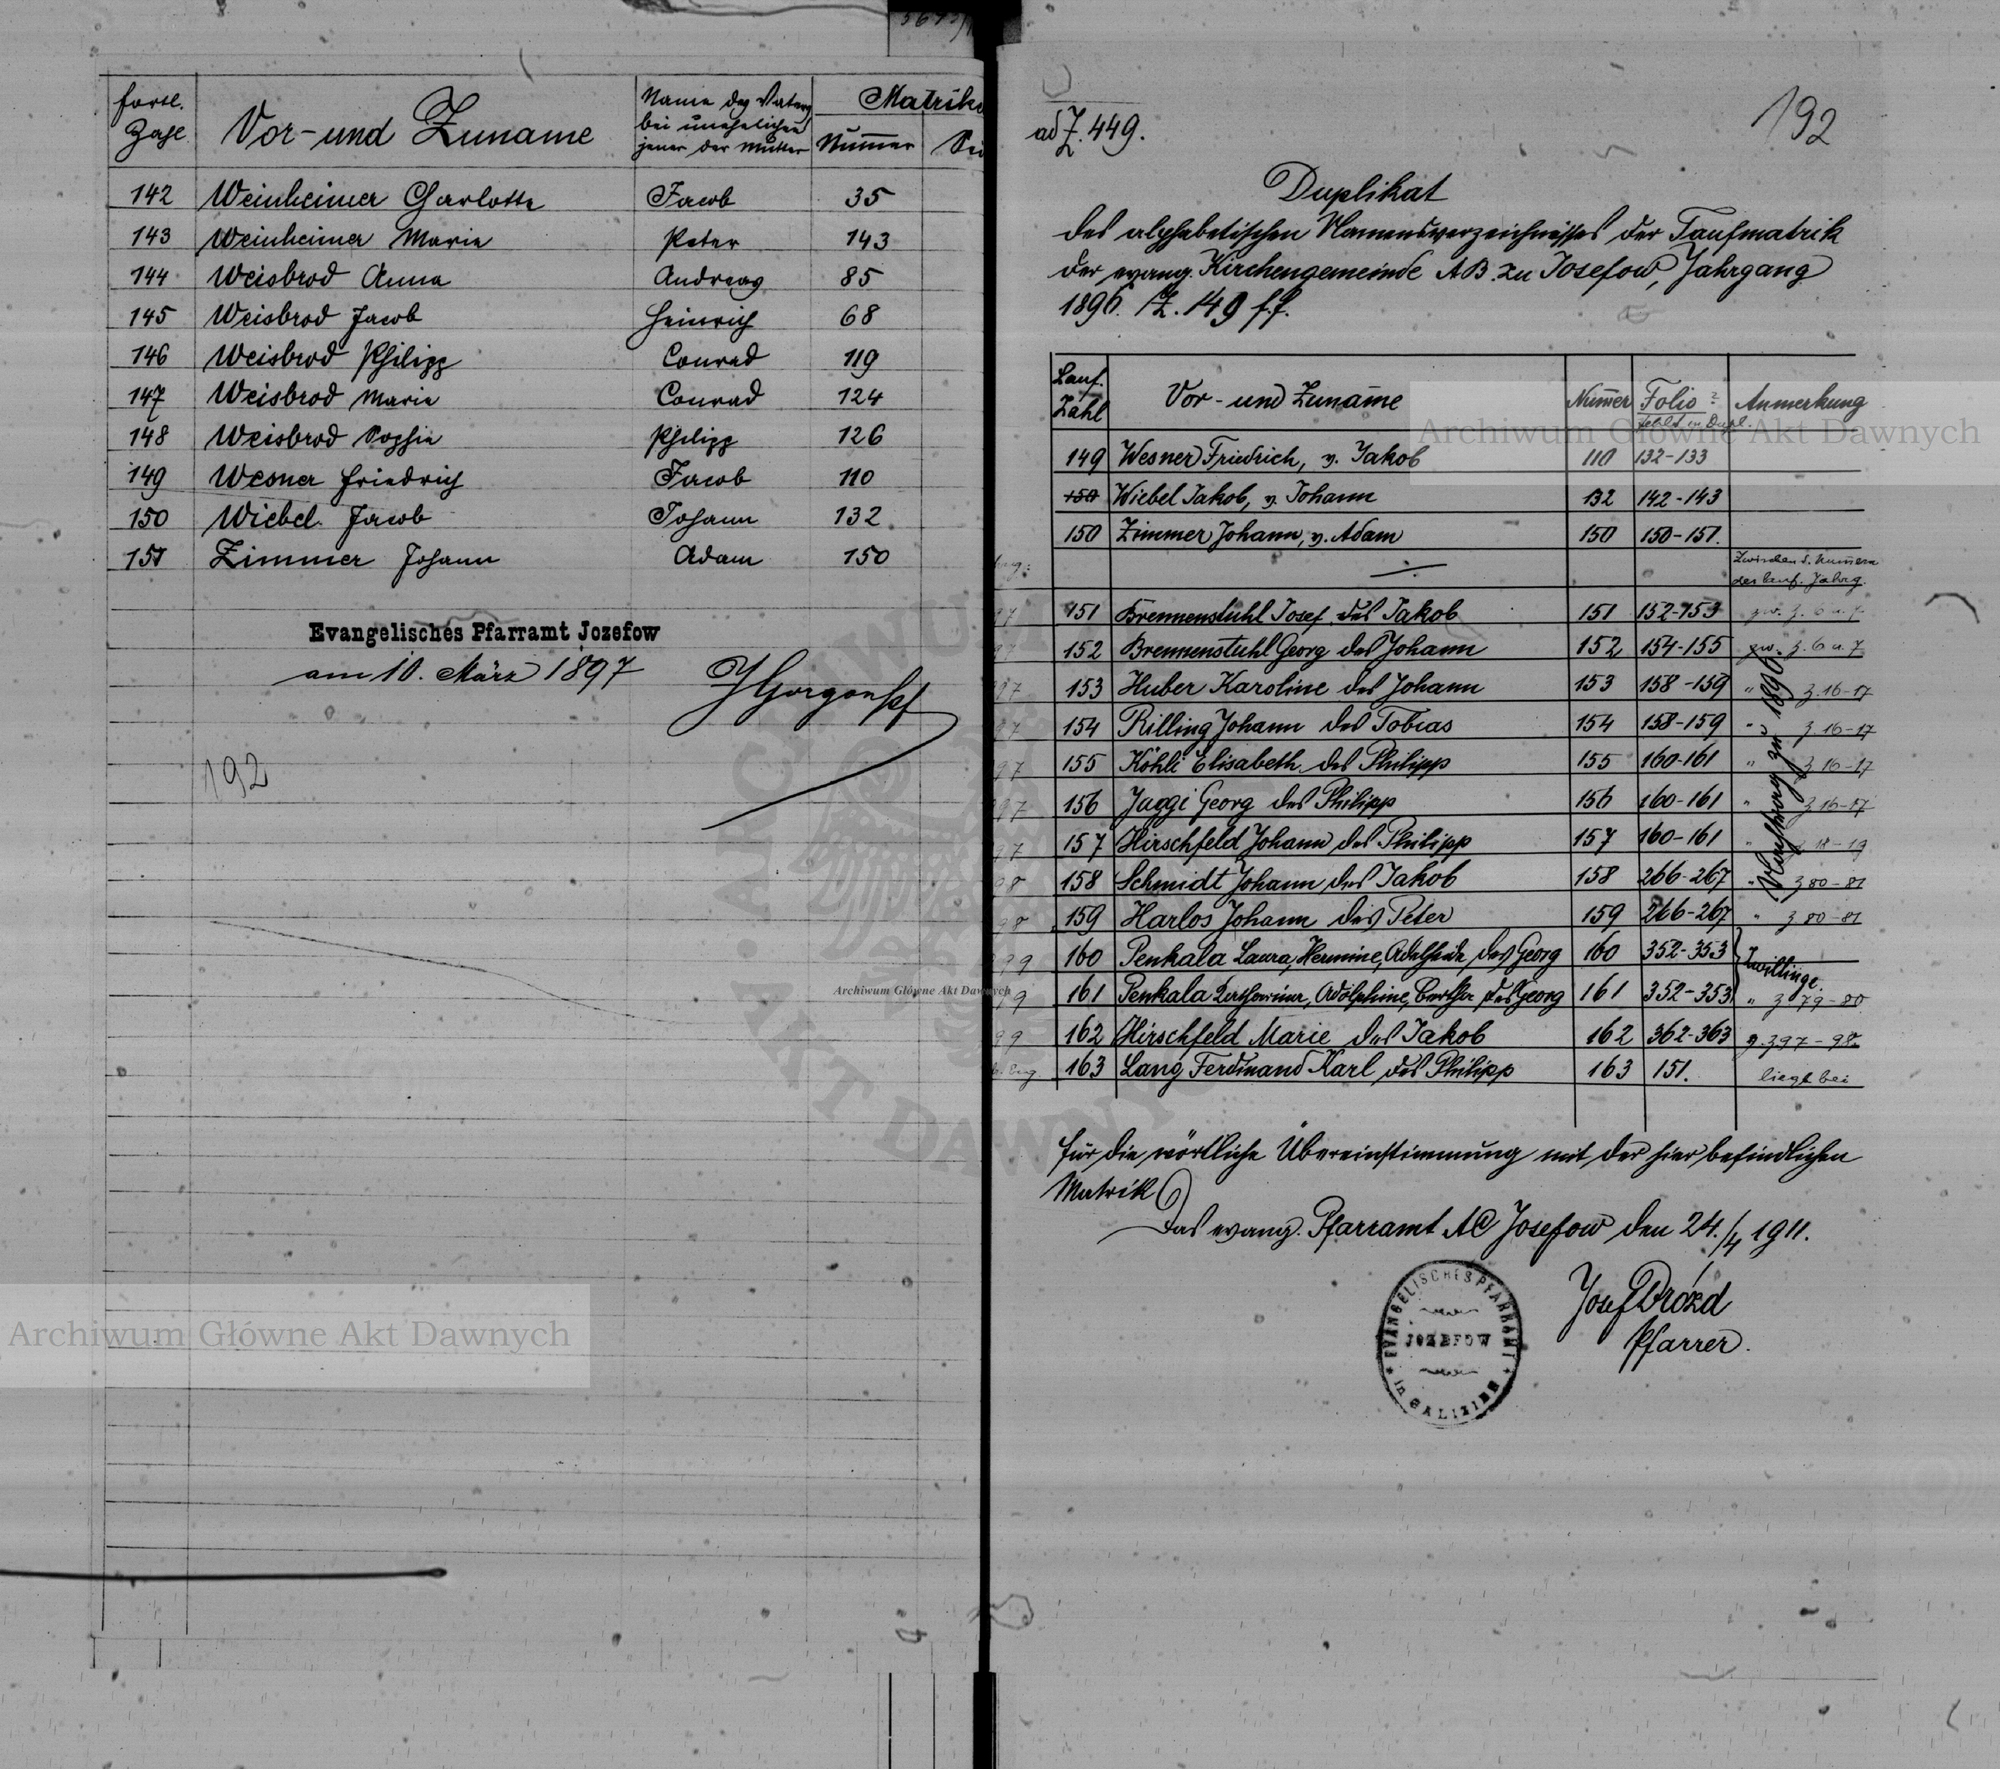 fortl. Zahl Vor- und Zuname Name des Vaters bei unehelichen jener der Mutter Matrik Nummer
142 Weinheimer Charlotte Jacob 35
143 Weinheimer Marie Peter 143
144 Weisbrod Anna Andreas 85
145 Weisbrod Jacob Heinrich 68
146 Weisbrod Philipp Conrad 119
147 Weisbrod Marie Conrad 124
148 Weisbrod Sophie Philipp 126
149 Wesner Friedrich Jacob 110
150 Wiebel Jacob Johann 132
151 Zimmer Johann Adam 150
Evangelisches Pfarramt Jozefow
am 10. März 1897
192
Archiwum Główne Akt Dawnych
ad Z. 449.
192
Duplikat
des alphabetischen Namensverzeichnisses der Taufmatrik
der evang. Kirchengemeinde AB. zu Josefow, Jahrgang
1896. Z. 149 f.f.
Lauf. Zahl Vor- und Zuname Nummer Folio ? fehlt im Dupl. Anmerkung
Archiwum Główne Akt Dawnych
149 Wesner Friedrich, v. Jakob 110 132-133
150 Wiebel Jakob, v. Johann 132 142-143
150 Zimmer Johann, v. Adam 150 150-151.
Zwischen d. Nummern
des lauf. Jahrg.
151 Brennenstuhl Josef des Jakob 151 152-153 zw. z. 6 u. 7
152 Brennenstuhl Georg des Johann 152 154-155 zw. z. 6 u. 7
153 Huber Karoline des Johann 153 158-159 " z. 16-17
154 Rilling Johann des Tobias 154 158-159 " z 16-17
155 Köhli Elisabeth des Philipp 155 160-161 " z 16-17
156 Jaggi Georg des Philipp 156 160-161 " z 16-17
157 Hirschfeld Johann des Philipp 157 160-161 " 18-19
158 Schmidt Johann des Jakob 158 266-267 " z 80-81
159 Harlos Johann des Peter 159 266-267 " z 80-81
Nachtrag zu 1896
160 Penkala Laura, Hermine, Adelheide des Georg 160 352-353 Zwillinge
161 Penkala Adolphine, Bertha des Georg 161 352-353 " z 79-80
162 Hirschfeld Marie des Jakob 162 362-363 z. 97-98
163 Lang Ferdinand Karl des Philipp 163 151. liegt bei
Archiwum Główne Akt Dawnych
für die wörtliche Übereinstimmung mit der hier befindlichen
Matrik
Das evang. Pfarramt AC Josefow den 24./4 1911.
EVANGELISCHES PFARRAMT
JOZEFOW
in GALIZIEN
Josef Drózd
Pfarrer.
ARCHIWUM
AKT DAWNYCH